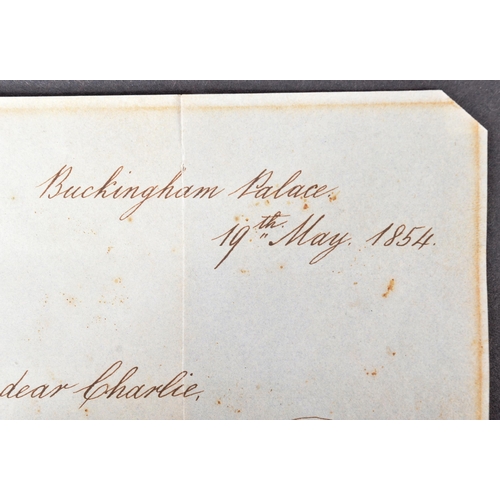 Buckingham Palace.
19th. May. 1854.
dear Charlie,